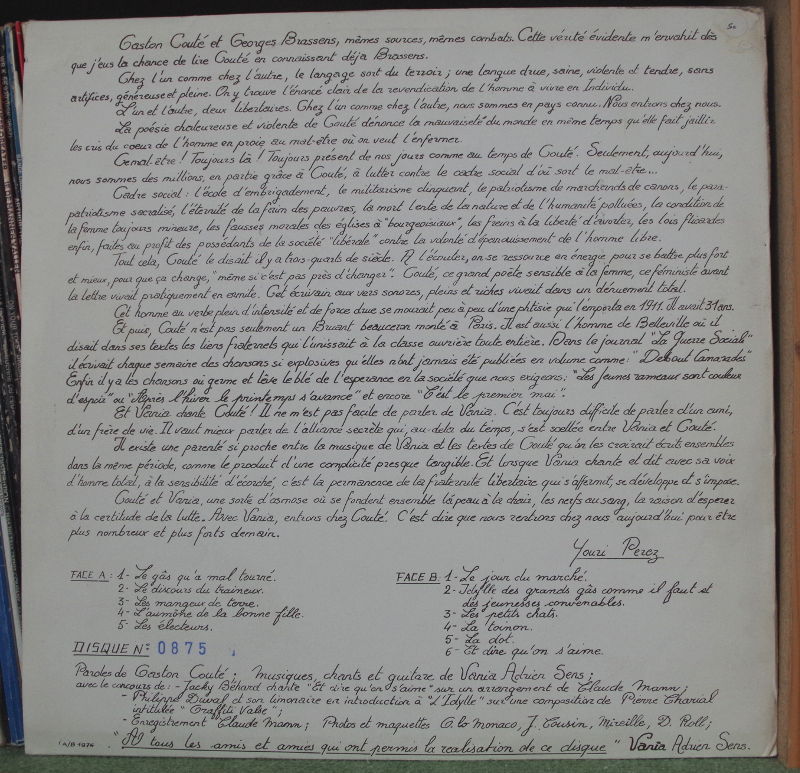 50
Gaston Couté et Georges Brassens, mêmes sources, mêmes combats. Cette vérité évidente m'envahit dès
que j'eus la chance de lire Couté en connaissant déjà Brassens.
Chez l'un comme chez l'autre, le langage sort du terroir ; une langue drue, saine, violente et tendre, sans
artifices, généreuse et pleine. On y trouve l'énoncé clair de la revendication de l'homme à vivre en Individu..
L'un et l'autre, deux libertaires. Chez l'un comme chez l'autre, nous sommes en pays connu. Nous entrons chez nous.
La poésie chaleureuse et violente de Couté dénonce la mauvaiseté du monde en même temps qu'elle fait jaillir
les cris du coeur de l'homme en proie au mal-être où on veut l'enfermer.
Ce mal-être ! Toujours là ! Toujours présent de nos jours comme au temps de Couté. Seulement, aujourd'hui,
nous sommes des millions, en partie grâce à Couté, à lutter contre le cadre social d'où sort le mal-être...
Cadre social : l'école d'embrigadement, le militarisme clinquant, le patriotisme de marchands de canons, le para-
patriotisme socialisé, l'éternité de la faim des pauvres, la mort lente de la nature et de l'humanité polluées, la condition de
la femme toujours mineure, les fausses morales des églises à "bourgeoisiaux", les freins à la liberté d'avorter, les lois flicardes
enfin, faites au profit des possédants de la société "libérale" contre la volonté d'épanouissement de l'homme libre.
Tout cela, Couté le disait il y a trois-quarts de siècle. A l'écouter, on se ressource en énergie pour se battre plus fort
et mieux, pour que ça change, "même si c'est pas près d'changer". Couté, ce grand poète sensible à la femme, ce féministe avant
la lettre vivait pratiquement en ermite. Cet écrivain aux vers sonores, pleins et riches vivait dans un dénuement total.
Cet homme au verbe plein d'intensité et de force drue se mourait peu à peu d'une phtisie qui l'emporta en 1911. Il avait 31 ans.
Et puis, Couté n'est pas seulement un Bruant beauceron monté à Paris. Il est aussi l'homme de Belleville où il
disait dans ses textes les liens fraternels qui l'unissait à la classe ouvrière toute entière. Dans le journal "La Guerre Sociale"
il écrivait chaque semaine des chansons si explosives qu'elles n'ont jamais été publiées en volume comme : "Debout Camarades"
Enfin il y a les chansons où germe et lève le blé de l'espérance en la société que nous exigeons ; "Les jeunes rameaux sont couleur
d'espoir" ou "Après l'hiver le printemps s'avance" et encore "C'est le premier mai".
Et Vania chante Couté ! Il ne m'est pas facile de parler de Vania. C'est toujours difficile de parler d'un ami,
d'un frère de vie. Il vaut mieux parler de l'alliance secrète qui, au-delà du temps, s'est scellée entre Vania et Couté.
Il existe une parenté si proche entre la musique de Vania et les textes de Couté qu'on les croirait écrits ensembles
dans la même période, comme le produit d'une complicité presque tangible. Et lorsque Vania chante et dit avec sa voix
d'homme total, à la sensibilité d'écorché, c'est la permanence de la fraternité libertaire qui s'affermit, se développe et s'impose.
Couté et Vania, une sorte d'osmose où se fondent ensemble la peau à la chair, les nerfs au sang, la raison d'espérer
à la certitude de la lutte. Avec Vania, entrons chez Couté. C'est dire que nous rentrons chez nous aujourd'hui pour être
plus nombreux et plus forts demain.
Youri Perez
FACE A : 1- Le gâs qu'a mal tourné.
2- Le discours du traineux.
3- Les mangeux de terre.
4- L'aumône de la bonne fille.
5- Les électeurs.
FACE B. 1- Le jour du marché.
2- Idylle des grands gâs comme il faut et
des jeunesses convenables.
3- Les petits chats.
4- La toinon.
5- La dot.
6- Et dire qu'on s'aime.
DISQUE N°: 0875
Paroles de Gaston Couté ; Musiques, chants et guitare de Vania Adrien Sens ;
avec le concours de : - Jacky Béhard chante "Et dire qu'on s'aime" sur un arrangement de Claude Mann ;
- Philippe Duval et son limonaire en introduction à "L'Idylle" sur une composition de Pierre Charial
intitulée "Graffiti Valse" ;
- Enregistrement Claude Mann ; Photos et maquettes G. lo Monaco, J. Cousin, Mireille, D. Roll ;
"A tous les amis et amies qui ont permis la réalisation de ce disque" Vania Adrien Sens.
A/B 1976